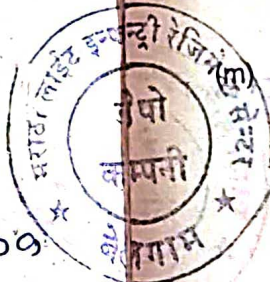 मराठा लाईट इन्फन्ट्री रेजिमें सेन्टर
(m)
डेपो
कम्पनी
09